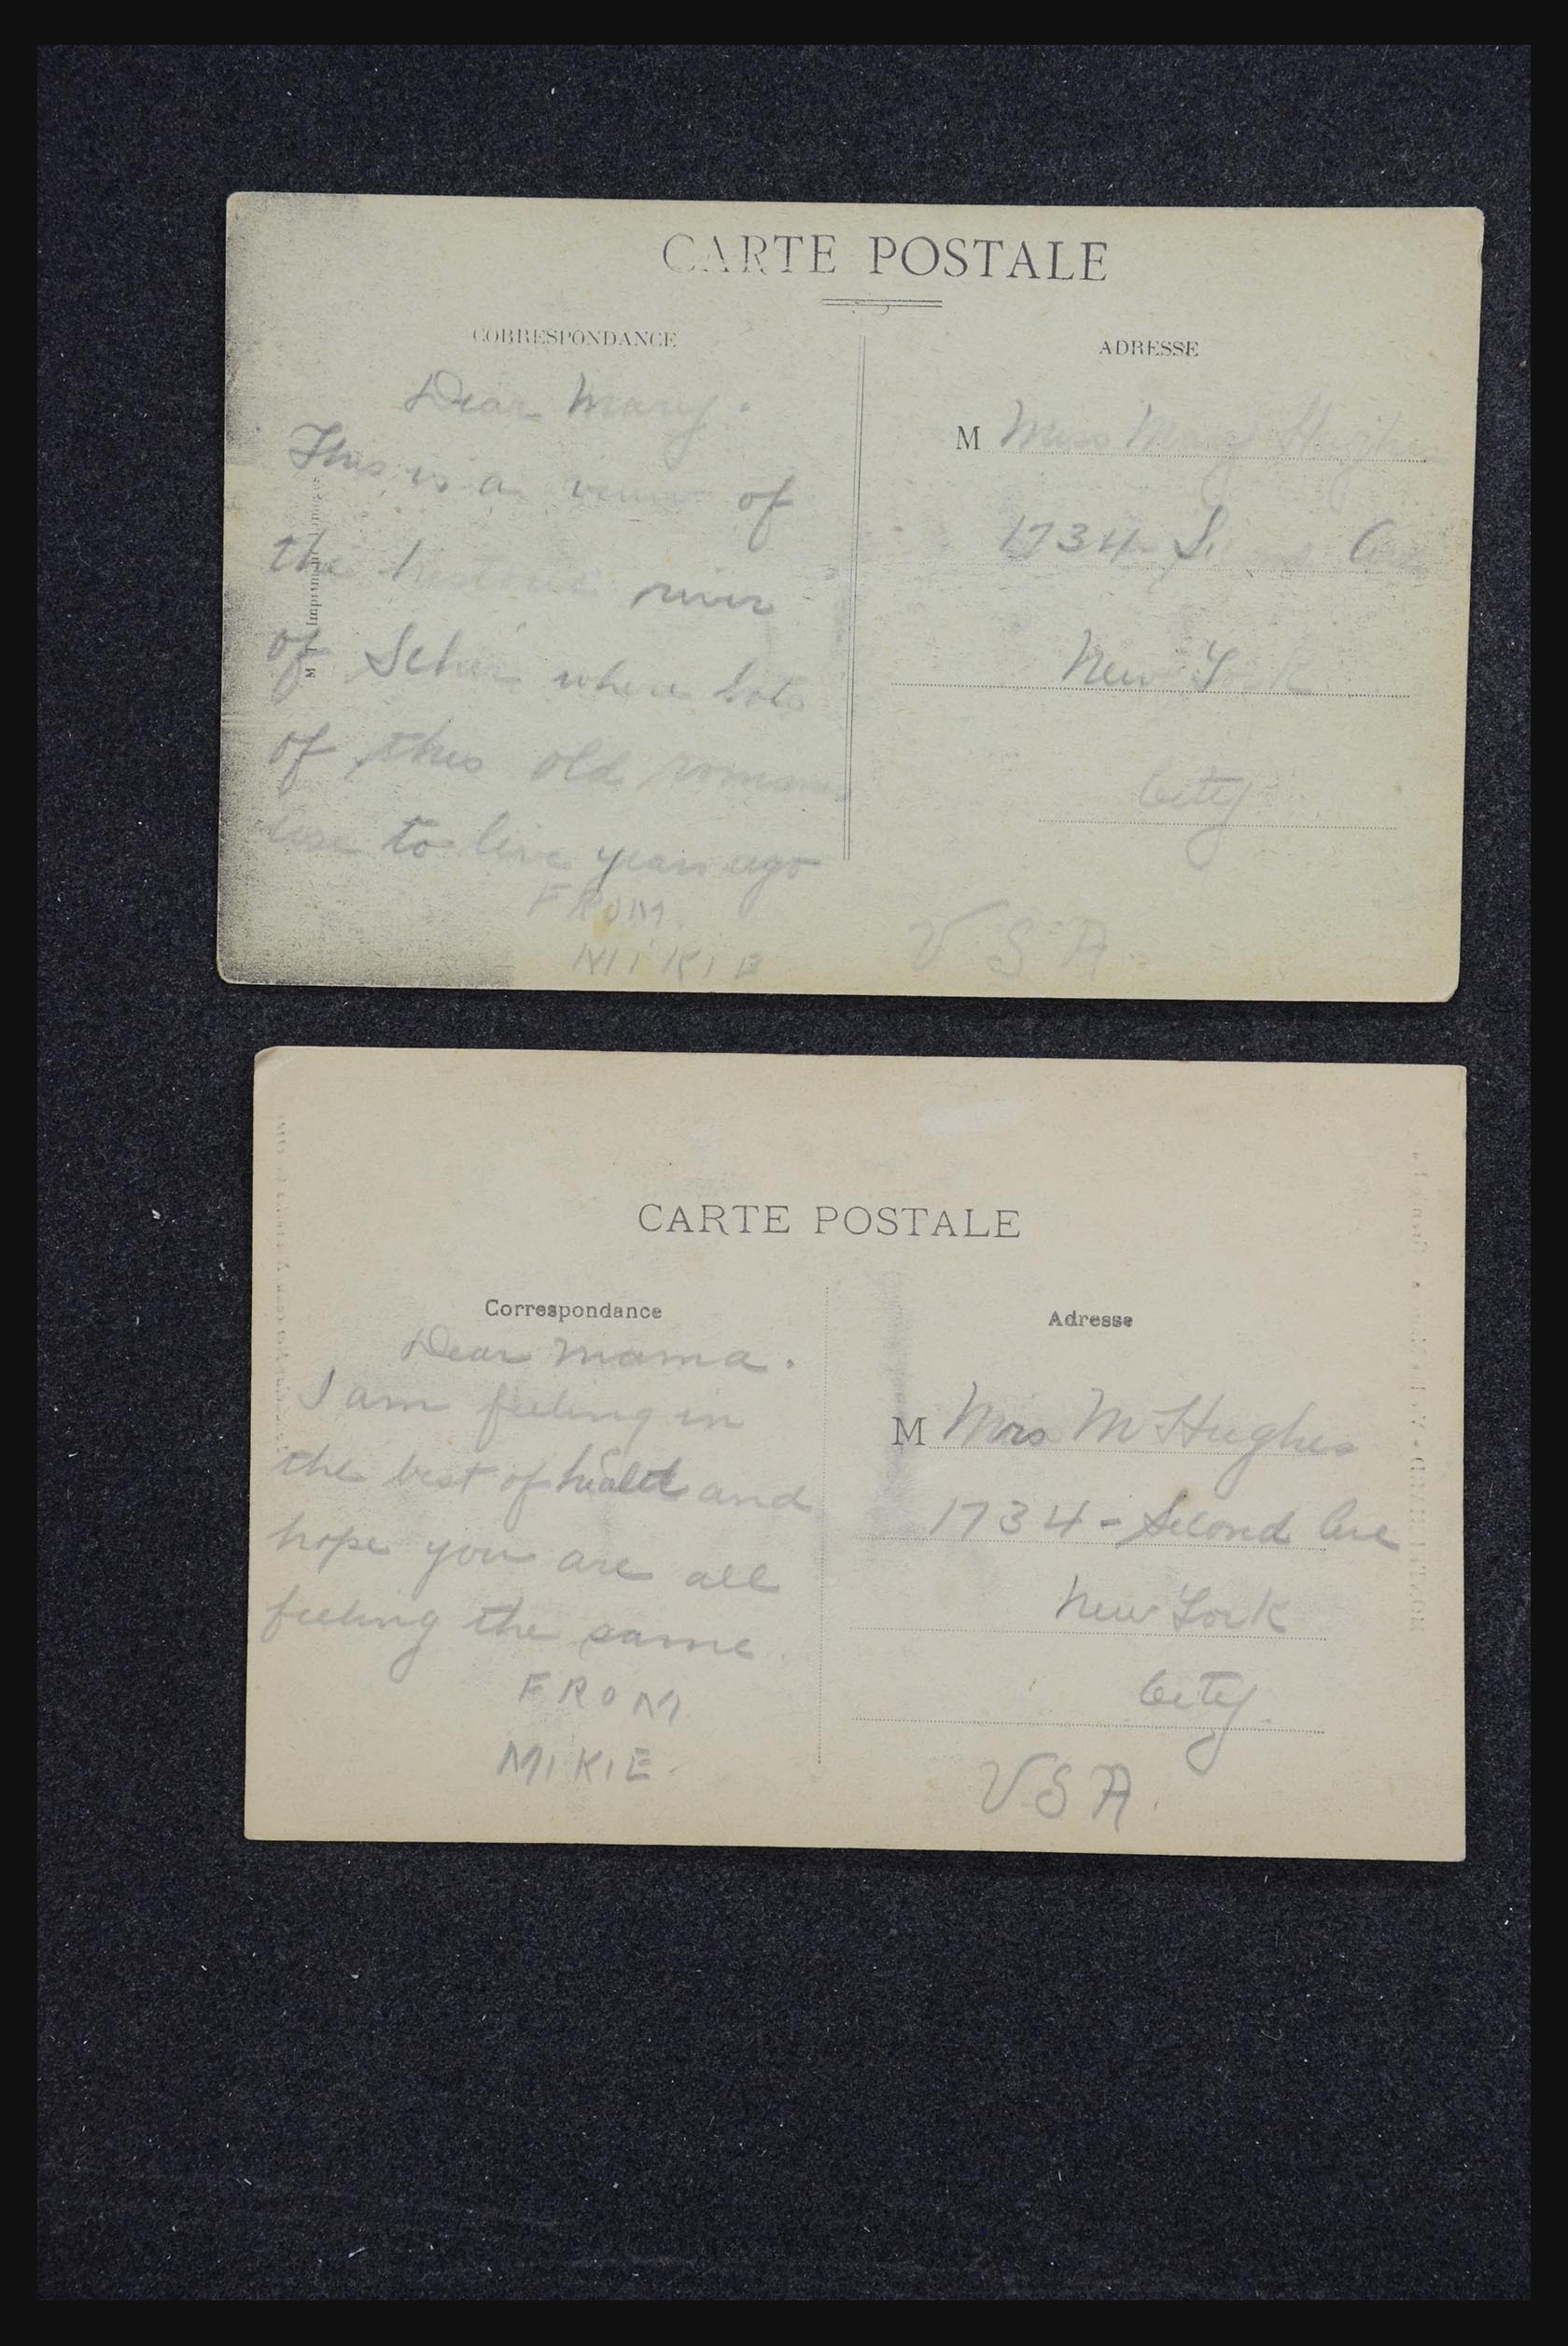 CARTE POSTALE
CORRESPONDANCE
Dear Mary.
This is a of
the historic river
of where lots
of this old romans
use to live years ago
FROM
MIKIE
ADRESSE
M Miss Mary Hughes
1734 - Ave
New York
City
USA.
CARTE POSTALE
Correspondance
Dear Mama.
I am feeling in
the best of and
hope you are all
feeling the same
FROM
MIKIE.
Adresse
M Mrs M Hughes
1734 - Second Ave
New York
City.
USA.